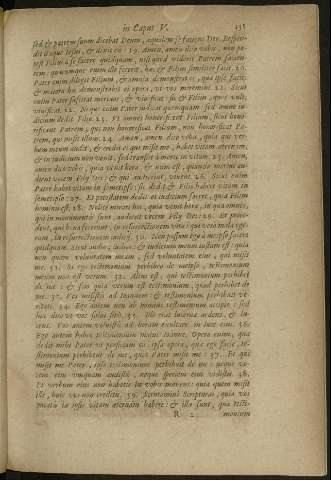 in Caput V. 131
sed & patrem suum dicebat Deum, æqualem se faciens Deo. Respon-
dit itaque Iesus, & dixit eis: 19. Amen, amen dico vobis, non po-
test Filius à se facere quidquam, nisi quod viderit Patrem facien-
tem: quæcumque enim ille fecerit, hæc & Filius similiter facit. 20.
Pater enim diligit Filium, & omnia demonstrat ei, quæ ipse facit:
& maiora his demonstrabit ei opera, ut vos miremini. 21. Sicut
enim Pater suscitat mortuos, & vivificat: sic & Filius, quos vult,
vivificat. 22. Neque enim Pater iudicat quemquam: sed omne iu-
dicium dedit Filio. 23. Ut omnes honorificent Filium, sicut hono-
rificant Patrem, qui non honorificat Filium, non honorificat Pa-
trem, qui misit illum. 24. Amen, amen dico vobis, quia qui ver-
bum meum audit, & credit ei qui misit me, habet vitam æternam,
& in iudicium non venit, sed transiet à morte in vitam. 25. Amen,
amen dico vobis, quia venit hora, & nunc est, quando mortui au-
dient vocem Filij Dei: & qui audierint, vivent. 26. Sicut enim
Pater habet vitam in semetipso: sic dedit & Filio habere vitam in
semetipso: 27. Et potestatem dedit ei iudicium facere, quia Filius
hominis est. 28. Nolite mirari hoc, quia venit hora, in qua omnes,
qui in monumentis sunt, audient vocem Filij Dei: 29. Et proce-
dent, qui bona fecerunt, in resurrectionem vitæ: qui verò mala ege-
runt, in resurrectionem iudicij. 30. Non possum ego à meipso facere
quidquam. Sicut audio, iudico: & iudicium meum iustum est: quia
non quæro voluntatem meam, sed voluntatem eius, qui misit
me. 31. Si ego testimonium perhibeo de meipso, testimonium
meum non est verum. 32. Alius est, qui testimonium perhibet
de me: & scio quia verum est testimonium, quod perhibet de
me. 33. Vos misistis ad Ioannem: & testimonium perhibuit ve-
ritati. 34. Ego autem non ab homine testimonium accipio: sed
hæc dico ut vos salvi sitis. 35. Ille erat lucerna ardens, & lu-
cens. Vos autem voluistis ad horam exultare in luce eius. 36.
Ego autem habeo testimonium maius Ioanne. Opera enim, quæ
dedit mihi Pater ut perficiam ea: ipsa opera, quæ ego facio, te-
stimonium perhibent de me, quia Pater misit me: 37. Et qui
misit me Pater, ipse testimonium perhibuit de me: neque vo-
cem eius umquam audistis, neque speciem eius vidistis. 38.
Et verbum eius non habetis in vobis manens: quia quem misit
ille, huic vos non creditis. 39. Scrutamini Scripturas, quia vos
putatis in ipsis vitam æternam habere: & illæ sunt, quæ testi-
R 2 monium